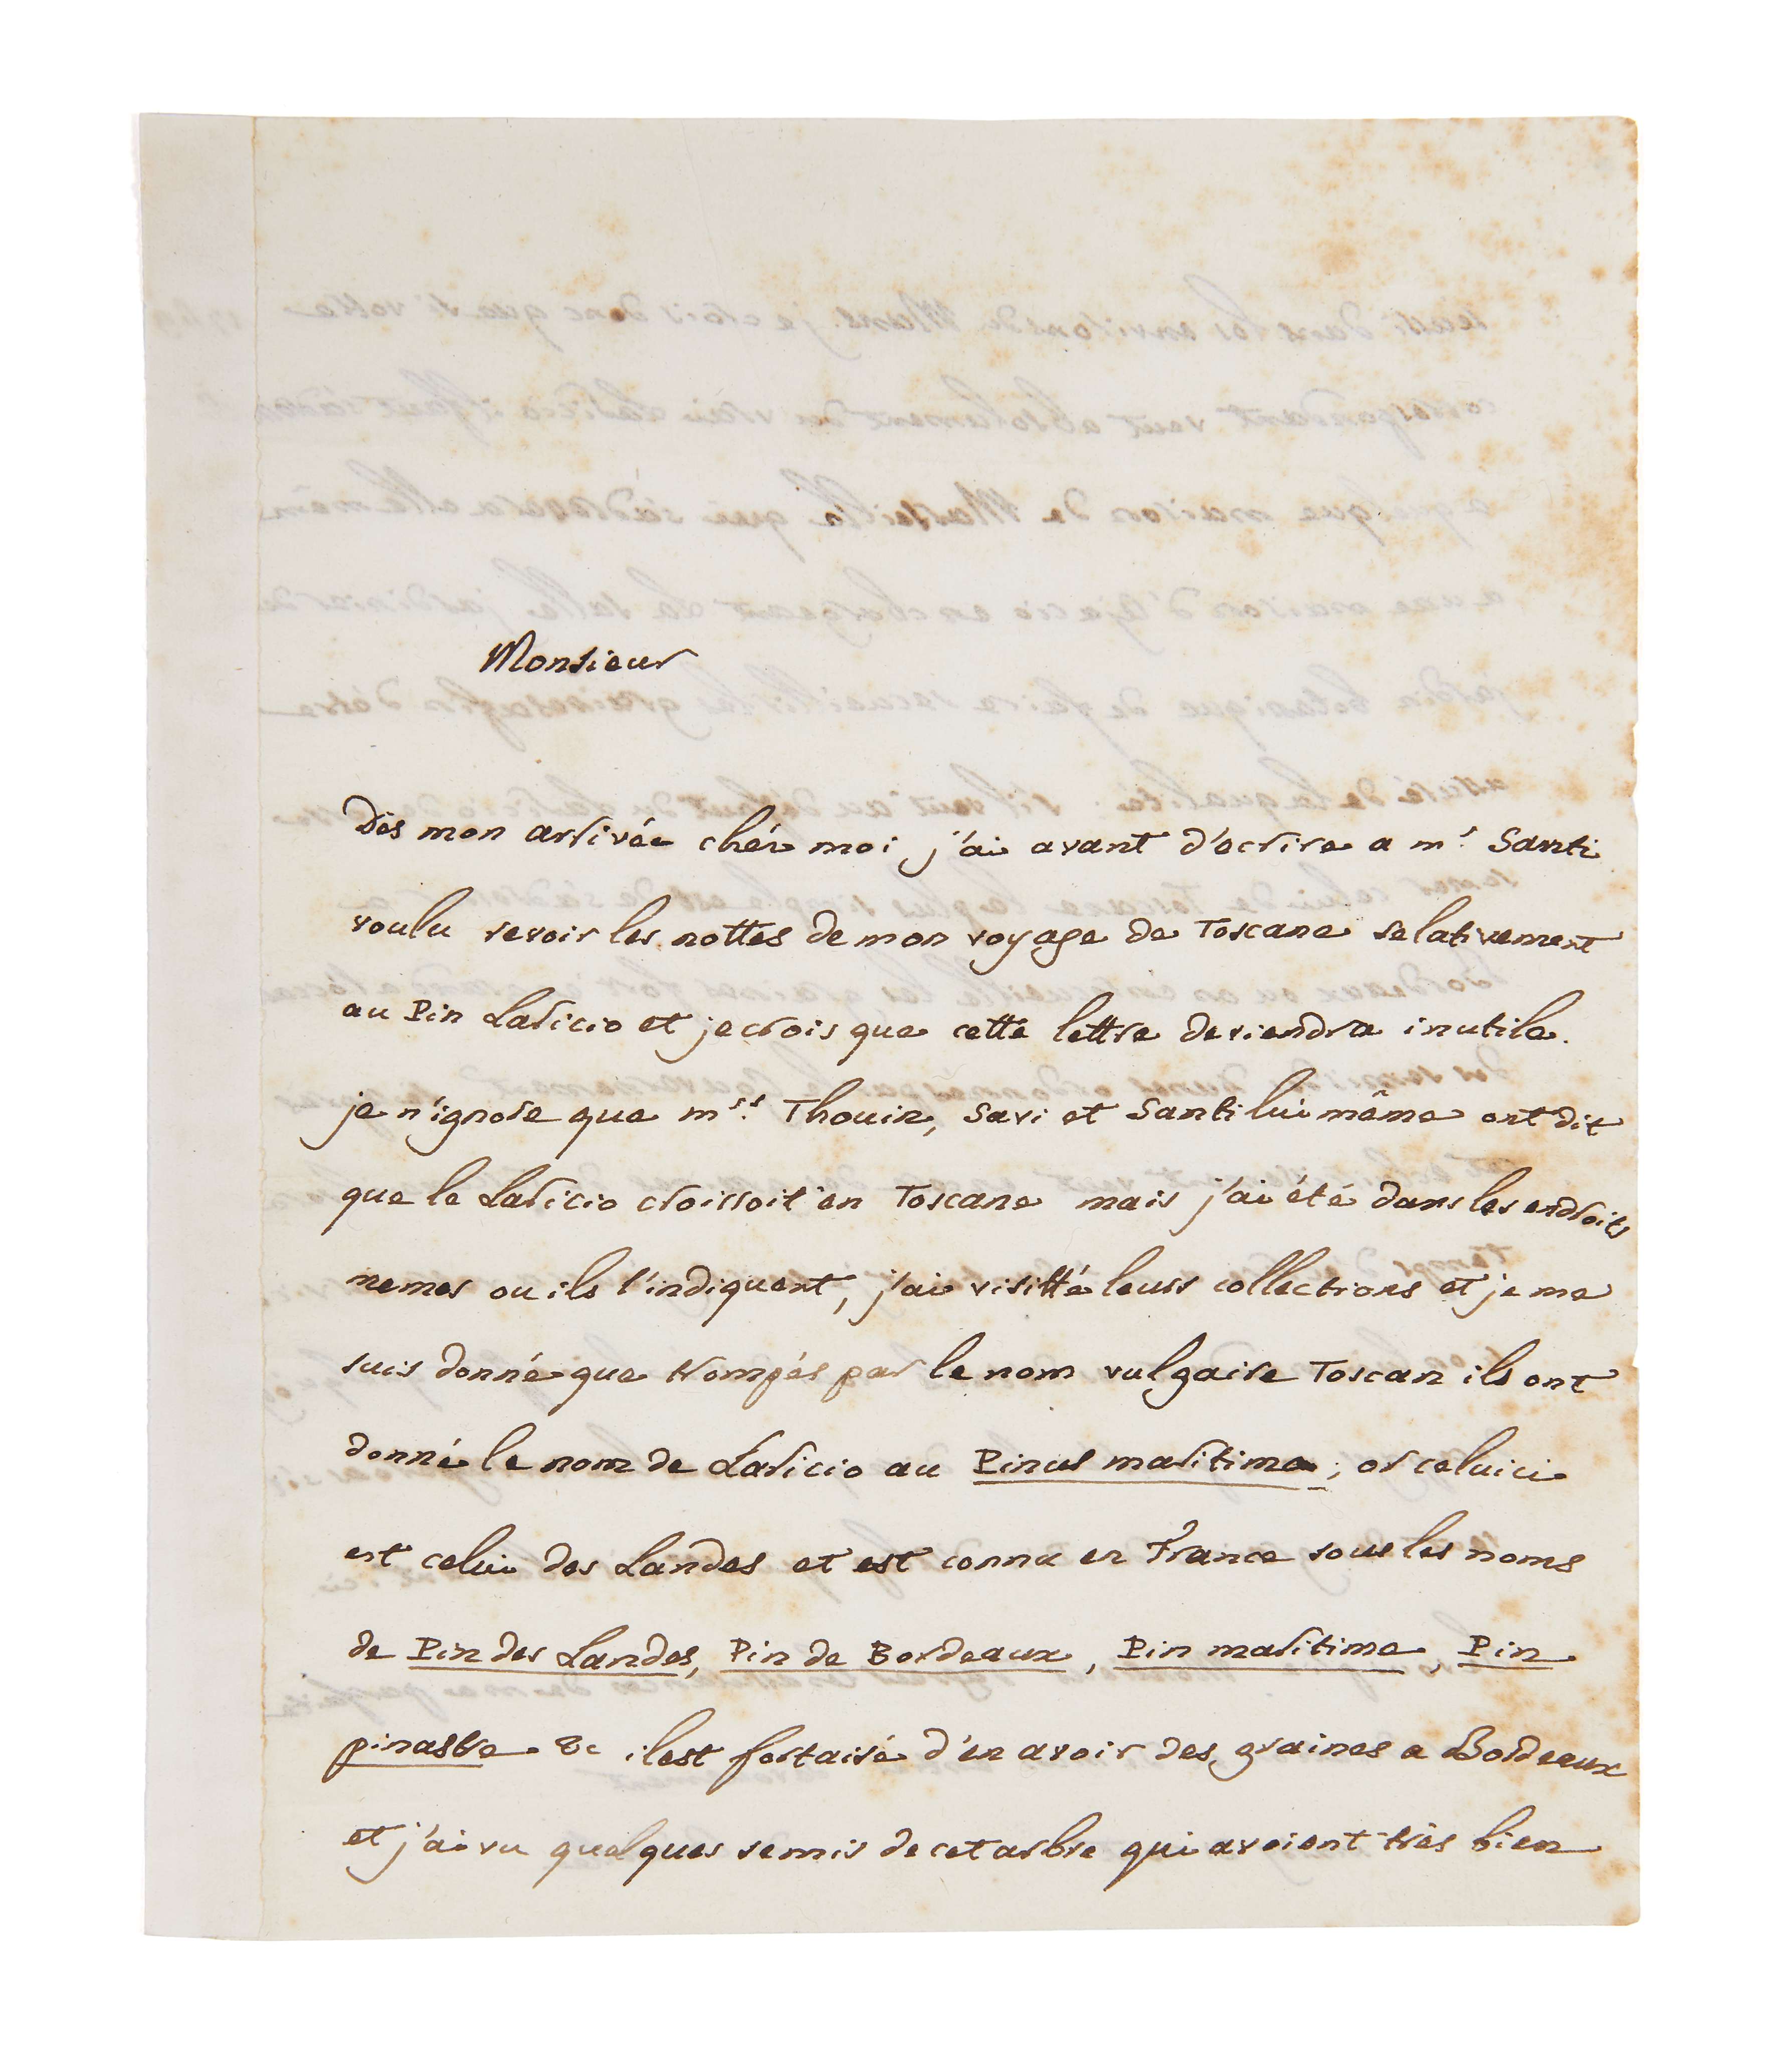 Monsieur
Dès mon arrivée chéz moi j'ai avant d'ecrire a mr. Santi
voulu revoir les nottes de mon voyage de Toscane relativement
au Pin Laricio et je crois que cette lettre deviendra inutile.
je n'ignore que mrs. Thouin, Savi et Santi lui même ont dit
que le Laricio croissoit en Toscane mais j'ai été dans les endroits
memes ou ils l'indiquent, j'ai visitté leurs collections et je me
suis donné que trompés par le nom vulgaire Toscan ils ont
donné le nom de Laricio au Pinus maritima; or celuici
est celui des Landes et est connu en France sous les noms
de Pin des Landes, Pin de Bordeaux, Pin maritime, Pin
pinastre &c il est fort aisé d'en avoir des graines a Bordeaux
et j'ai vu quelques semis de cet arbre qui avoient très bien